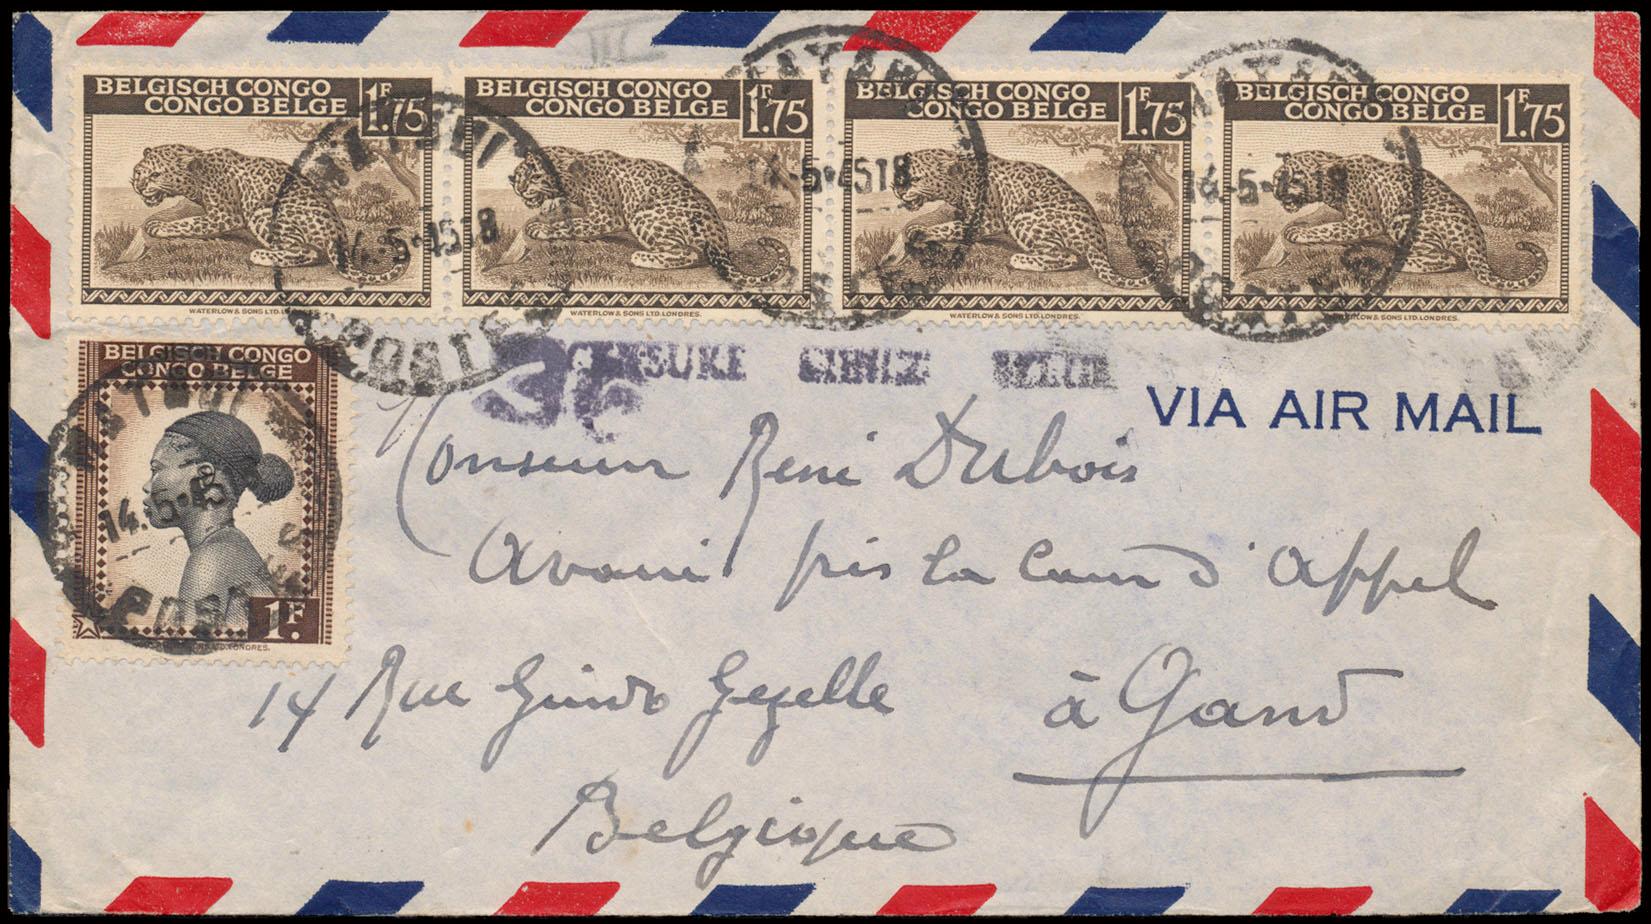 BELGISCH CONGO
CONGO BELGE
1F.75
WATERLOW & SONS LTD. LONDRES.
BELGISCH CONGO
CONGO BELGE
1F.75
WATERLOW & SONS LTD. LONDRES.
BELGISCH CONGO
CONGO BELGE
1F.75
WATERLOW & SONS LTD. LONDRES.
BELGISCH CONGO
CONGO BELGE
1F.75
WATERLOW & SONS LTD. LONDRES.
14-5-45 18
14-5-45 18
14-5-45 18
POSTE
BELGISCH CONGO
CONGO BELGE
14-5-45
1F.
LONDRES.
VIA AIR MAIL
Monsieur René Dubois
Avoué près la Cour d'Appel
14 Rue Guido Gezelle à Gand
Belgique